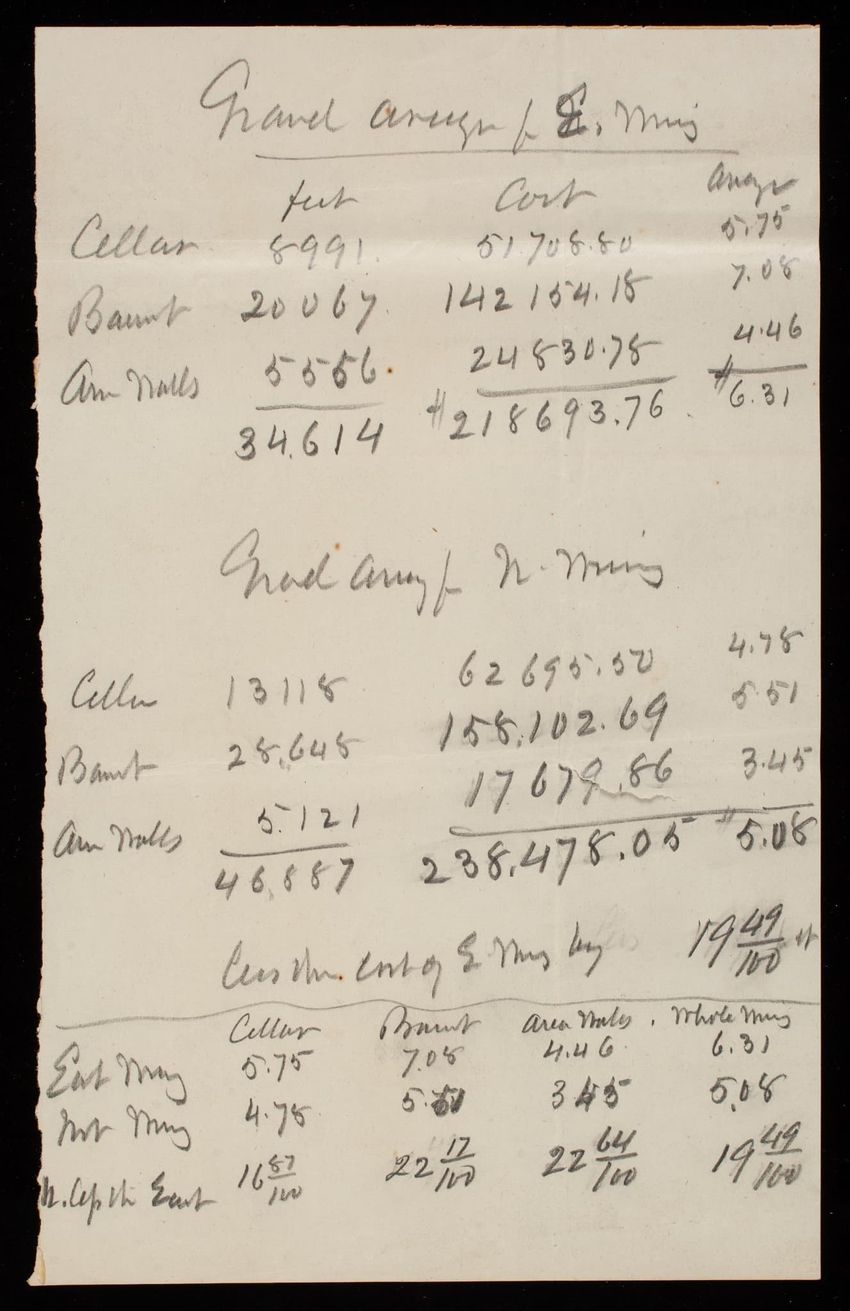 Grand average for E. Wing
feet Cost Average
Cellar 8991 51.708.80 5.75
Basmt 20067 142154.18 7.08
Area Walls 5556 24830.78 4.46
34.614 $218693.76 $6.31
Grand Average for N. Wing
Cellar 13118 62695.50 4.78
Basmt 28,648 158,102.69 5.51
Area Walls 5.121 17679.86 3.45
46,887 238,478.05 $5.08
less than cost of E Wing by 19 49/100
Cellar Basmt Area Walls. Whole Wing
East Wing 5.75 7.08 4.46 6.31
Nort Wing 4.78 5.51 3.45 5.08
N. less th East 16 87/100 22 17/100 22 64/100 19 49/100